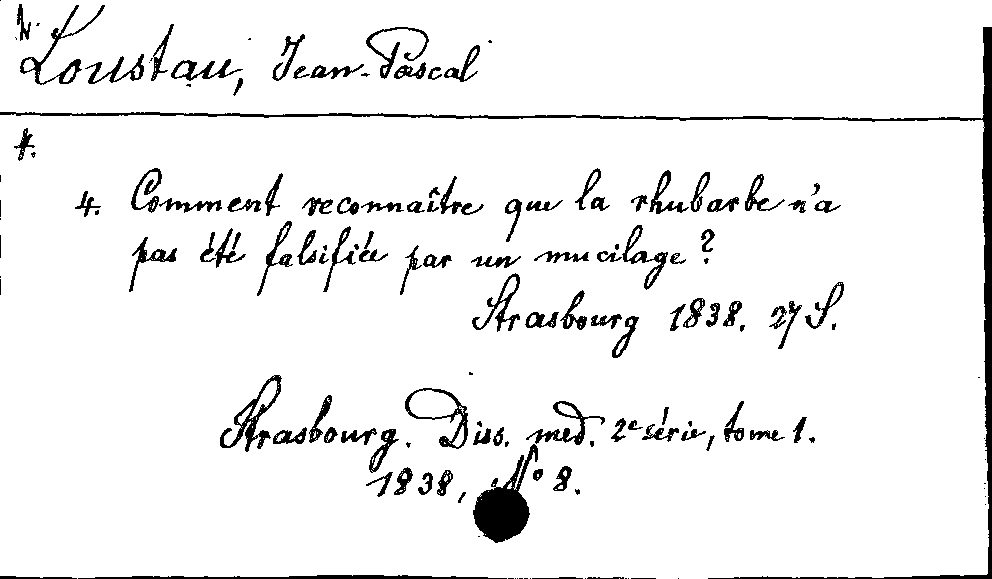 Loustau, Jean-Pascal
4. Comment reconnaître que la rhubarbe n'a
pas été falsifiée par un mucilage?
Strasbourg 1838. 27 S.
Strasbourg. Diss. med. 2e série, tome 1.
1838, No 8.